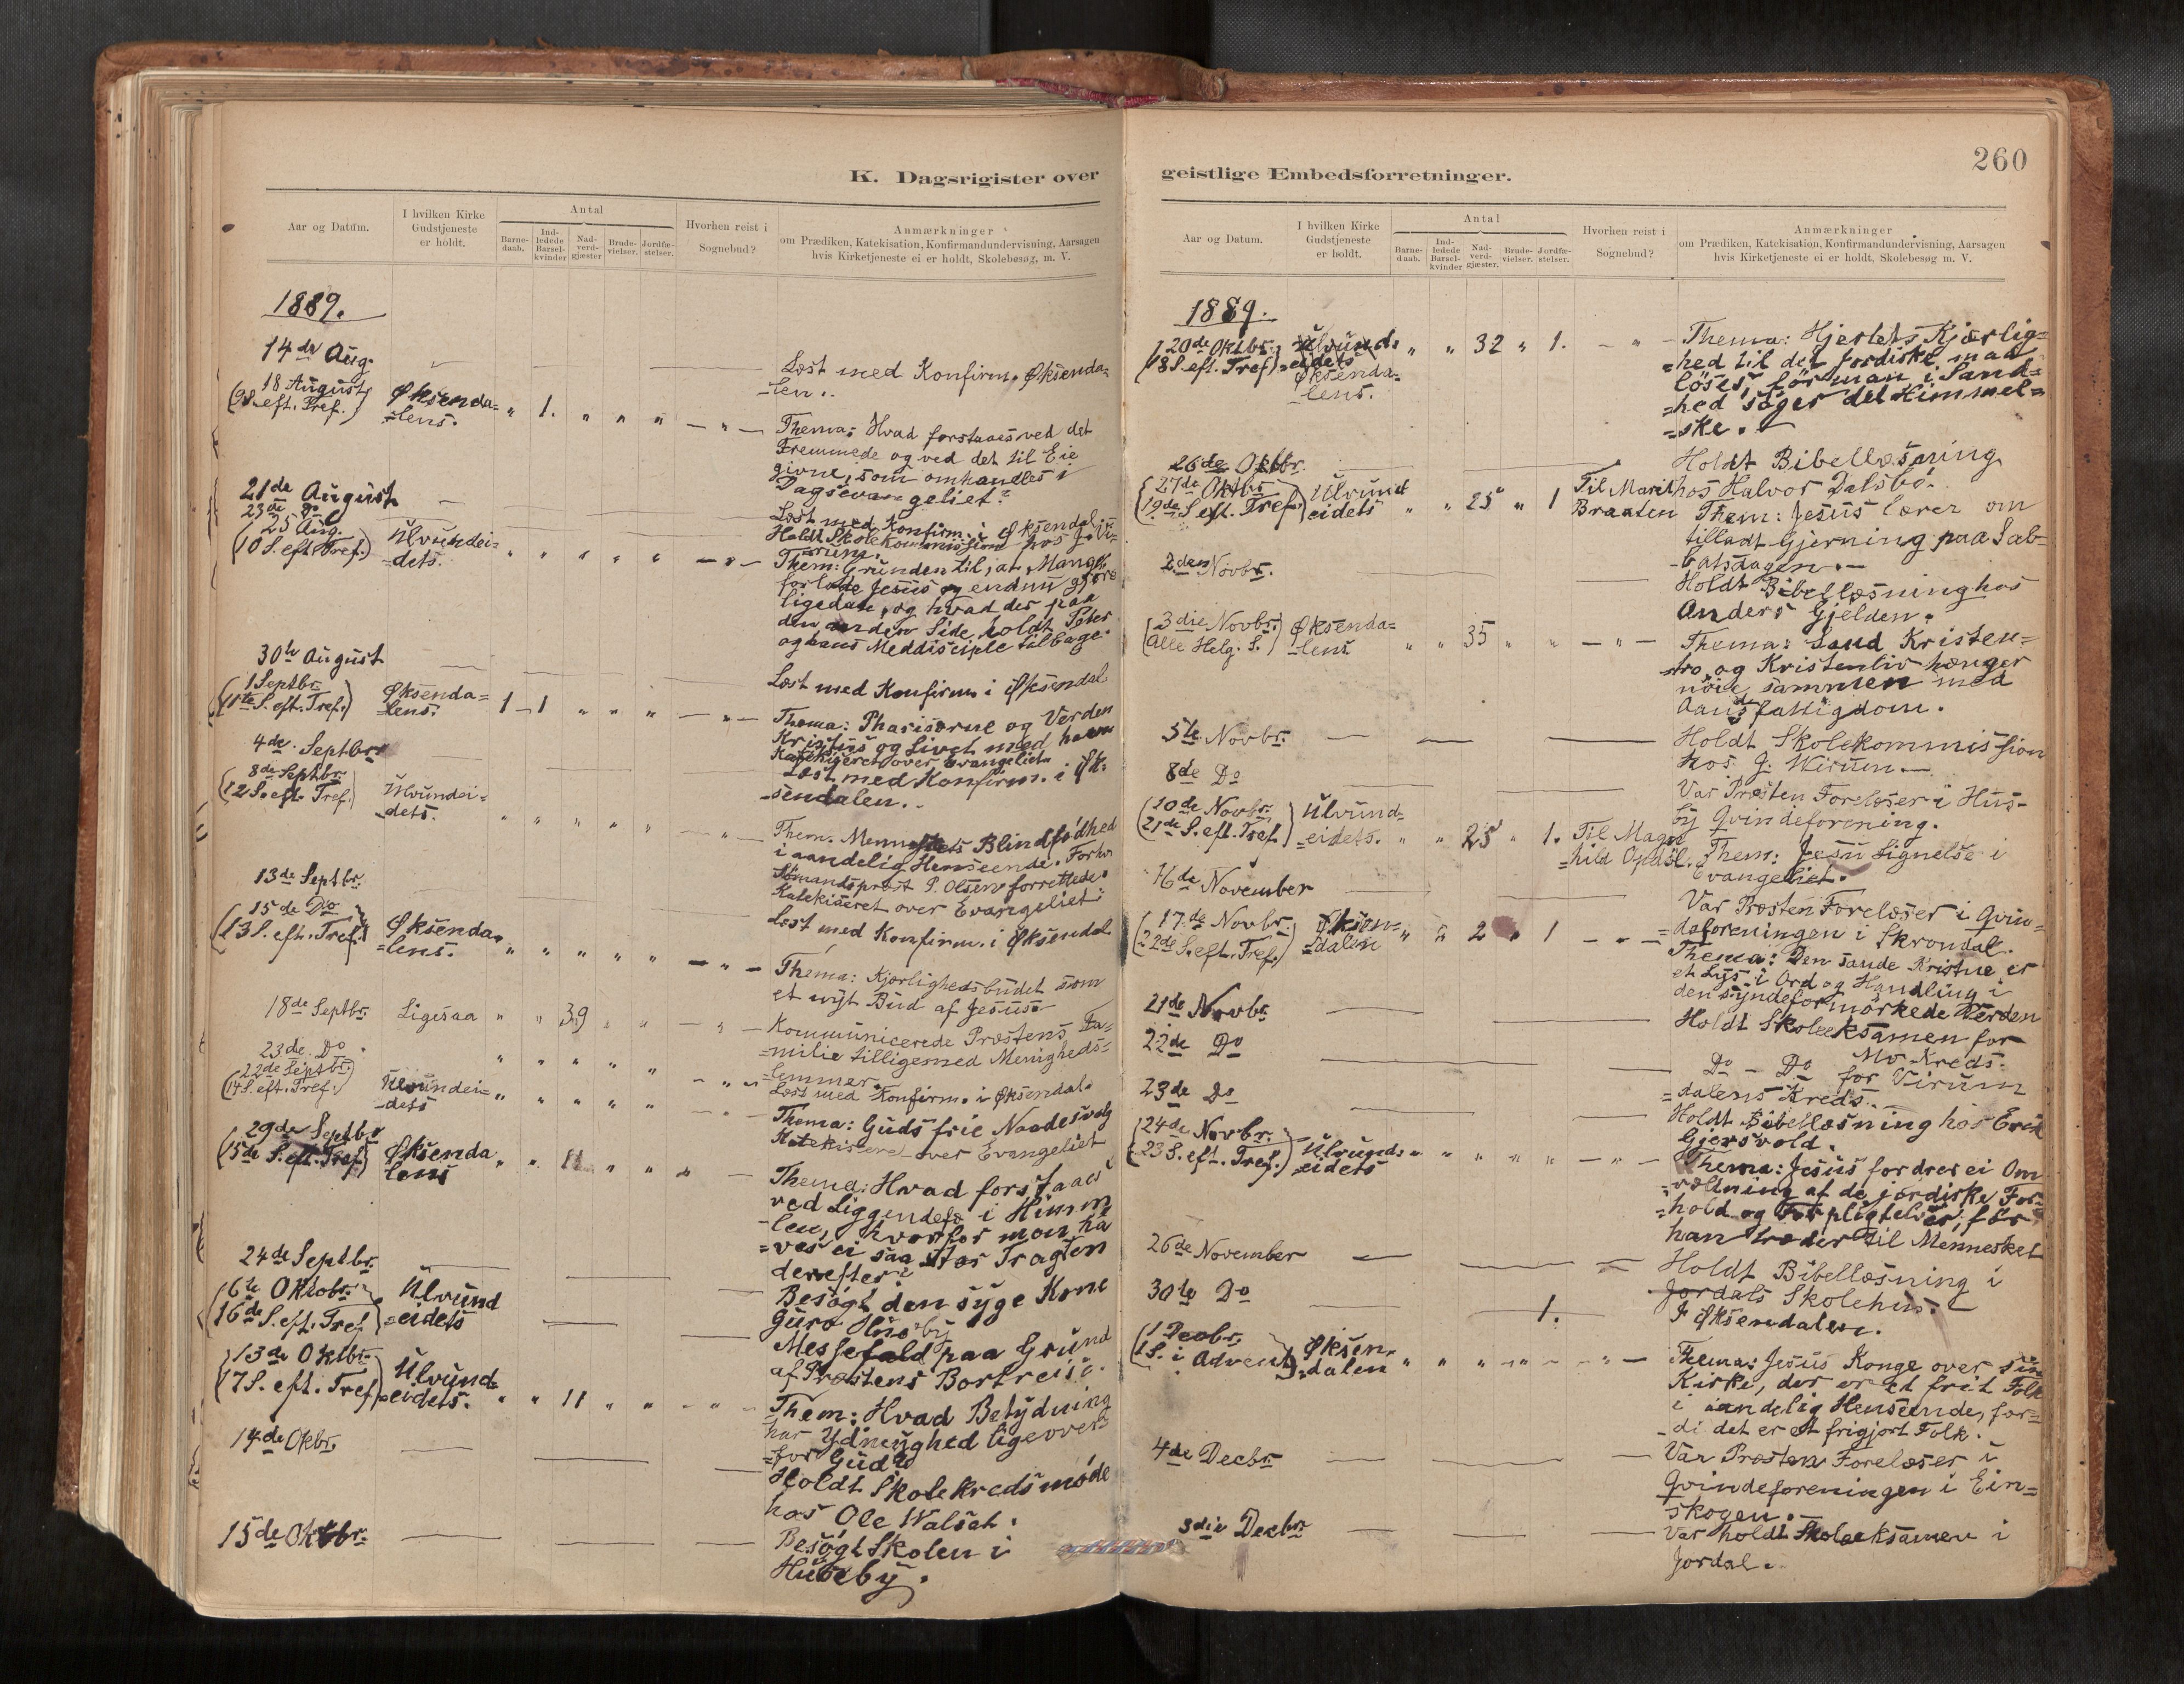 K. Dagsrigister over
Aar og Datum.
I hvilken Kirke Gudstjeneste er holdt.
Antal
Barne-daab.
Ind-ledede Barsel-kvinder
Nad-verd-gjæster.
Brude-vielser.
Jordfæ-stelser.
Hvorhen reist i Sognebud?
Anmærkninger
om Prædiken, Katekisation, Konfirmandundervisning, Aarsagen
hvis Kirketjeneste ei er holdt, Skolebesøg, m. V.
1889.
14de Aug.
Læst med Konfirm. Øksenda=
=len.
18 August
(9 S. eft. Tref.) Øksenda=
=lens. " 1. " " " — " —
Thema: Hvad forstaaes ved det
Fremmede og ved det til Eie
givne, som omhandles i
Dagsevangeliet?
21de August
Læst med Konfirm. i Øksendal
23de Do
Holdt Skolekommission hos
25 Aug.
(10 S. eft. Tref.) Ulvundei=
=dets. " " " " " — " —
Them: Grunden til, at Mange
forlode Jesus og endnu gjøre
ligedan, og hvad der paa
den anden Side holdt Peter
og hans Meddisciple tilbage.
30te August
Læst med Konfirm. i Øksendal
1 Septbr.
(11te S. eft. Tref.) Øksenda=
=lens. 1 1 " " " — " —
Thema: Phariserne og Verden
Kristus og Livet med ham
Katekiseret over Evangeliet
4de Septbr.
Læst med Konfirm. i Øk=
=sendalen.
8de Septbr.
(12 S. eft. Tref.) Ulvundei=
=dets. " " " " " — " —
Them. Menneskets Blindfødhed
i aandelig Henseende. Forhv.
Sømandsprest P. Olsen forrettede.
Katekiseret over Evangeliet.
13de Septbr.
Læst med Konfirm. i Øksendal
15de Do
(13 S. eft. Tref.) Øksenda=
=lens. " " " " " — " —
Thema: Kjærlighedsbudet som
et nyt Bud af Jesus.
18de Septbr. Ligesaa " " 39 " " — " —
Kommunicerede Præstens Fa=
=milie tilligemed Menigheds=
=lemmer.
23de Do
Læst med Konfirm. i Øksendal.
22de Septbr.
(14 S. eft. Tref.) Ulvundei=
=dets " " " " "
Thema: Guds frie Naadesvalg
Katekiseret over Evangeliet
29de Septbr.
(15de S. eft. Tref.) Øksenda
lens " " 11 " " "
Thema: Hvad forstaaes
ved Liggendefæ i Himm
=len, hvorfor man ha
=ves ei saa stor Tragten
derefter?
24de Septbr.
Besøgt den syge Kone
Guro Huseby
6te Oktobr.
(16de S. eft. Tref.) Ulvund
=eidets
Messefald paa Grund
af Præstens Bortreise.
13de Oktbr.
(17 S. eft. Tref.) Ulvund=
=eidets. " " 11 " " — " —
Them: Hvad Betydning
har Ydmyghed ligeover=
=for Gud?
14de Okbr.
Holdt Skolekredsmøde
hos Ole Walset.
15de Oktbr.
Besøgt Skolen i
Huseby.
260
geistlige Embedsforretninger.
Aar og Datum.
I hvilken Kirke Gudstjeneste er holdt.
Antal
Barne-daab.
Ind-ledede Barsel-kvinder
Nad-verd-gjæster.
Brude-vielser.
Jordfæ-stelser.
Hvorhen reist i Sognebud?
Anmærkninger
om Prædiken, Katekisation, Konfirmandundervisning, Aarsagen
hvis Kirketjeneste ei er holdt, Skolebesøg m. V.
1889.
20de Oktbr.
(18 S. eft. Tref.) Ulvund=
=eidets
Øksenda=
=lens. " " 32 " 1. — " —
Thema: Hjertets Kjærlig=
=hed til det Jordiske maa
løses, før man i Sand=
=hed søger det Himmel=
=ske.
26de Oktbr.
Holdt Bibellæsning
hos Halvor Dalsbø.
27de Oktbr.
(19de S. eft. Tref.) Ulvund
eidets " " 25 " 1 Til Marit
Braaten
Them: Jesus lærer om
tilladt Gjerning paa Sab=
=batsdagen.
2den Novbr.
Holdt Bibellæsning hos
Anders Gjelden.
3die Novbr.
(Alle Helg. S.) Øksenda=
=lens " " 35 " " — " —
Thema: Sand Kristen=
tro og Kristenliv hænger
nøie sammen med
Aandsfattigdom.
5te Novbr.
Holdt Skolekommission
hos G. Wirum.
8de Do
Var Præsten Forelæser i Hus=
by Qvindeforening.
10de Novbr.
(21de S. eft. Tref.) Ulvund=
=eidets. " " 25 " 1. Til Magn
=hild Opdøl.
Them: Jesu Lignelse i
Evangeliet.
16de November
Var Præsten Forelæser i Qvin=
=deforeningen i Skrondal.
17de Novbr.
(22de S. eft. Tref.) Øksen=
=dalen " " 2 " 1 — " —
Thema: Den sande Kristne er
et Lys i Ord og Handling i
den syndeformørkede Verden
21de Novbr.
Holdt Skoleeksamen for
Mo Kreds.
22de Do
Do — Do for Virum
=dalens Kreds.
23de Do
Holdt Bibellæsning hos Erik
Gjersvold.
24de Novbr.
(23 S. eft. Tref.) Ulvund=
eidets " " " " " — " —
Thema: Jesus fordrer ei Om
=væltning af de jordiske For=
=hold og Forpligtelser, før
han træder til Mennesket
26de November
Holdt Bibellæsning i
Jordals Skolehus.
30te Do 1.
I Øksendalen.
1 Decbr.
(1 S. i Advent) Øksen=
=dalen " " " " " — " —
Thema: Jesus Konge over sin
Kirke, der er et frit Folk
i aandelig Henseende, for=
=di det er et frigjort Folk.
4de Decbr.
Var Præsten Forelæser i
Qvindeforeningen i Ein=
skogen.
3die Decbr.
Var holdt Skoleeksamen i
Jordal.